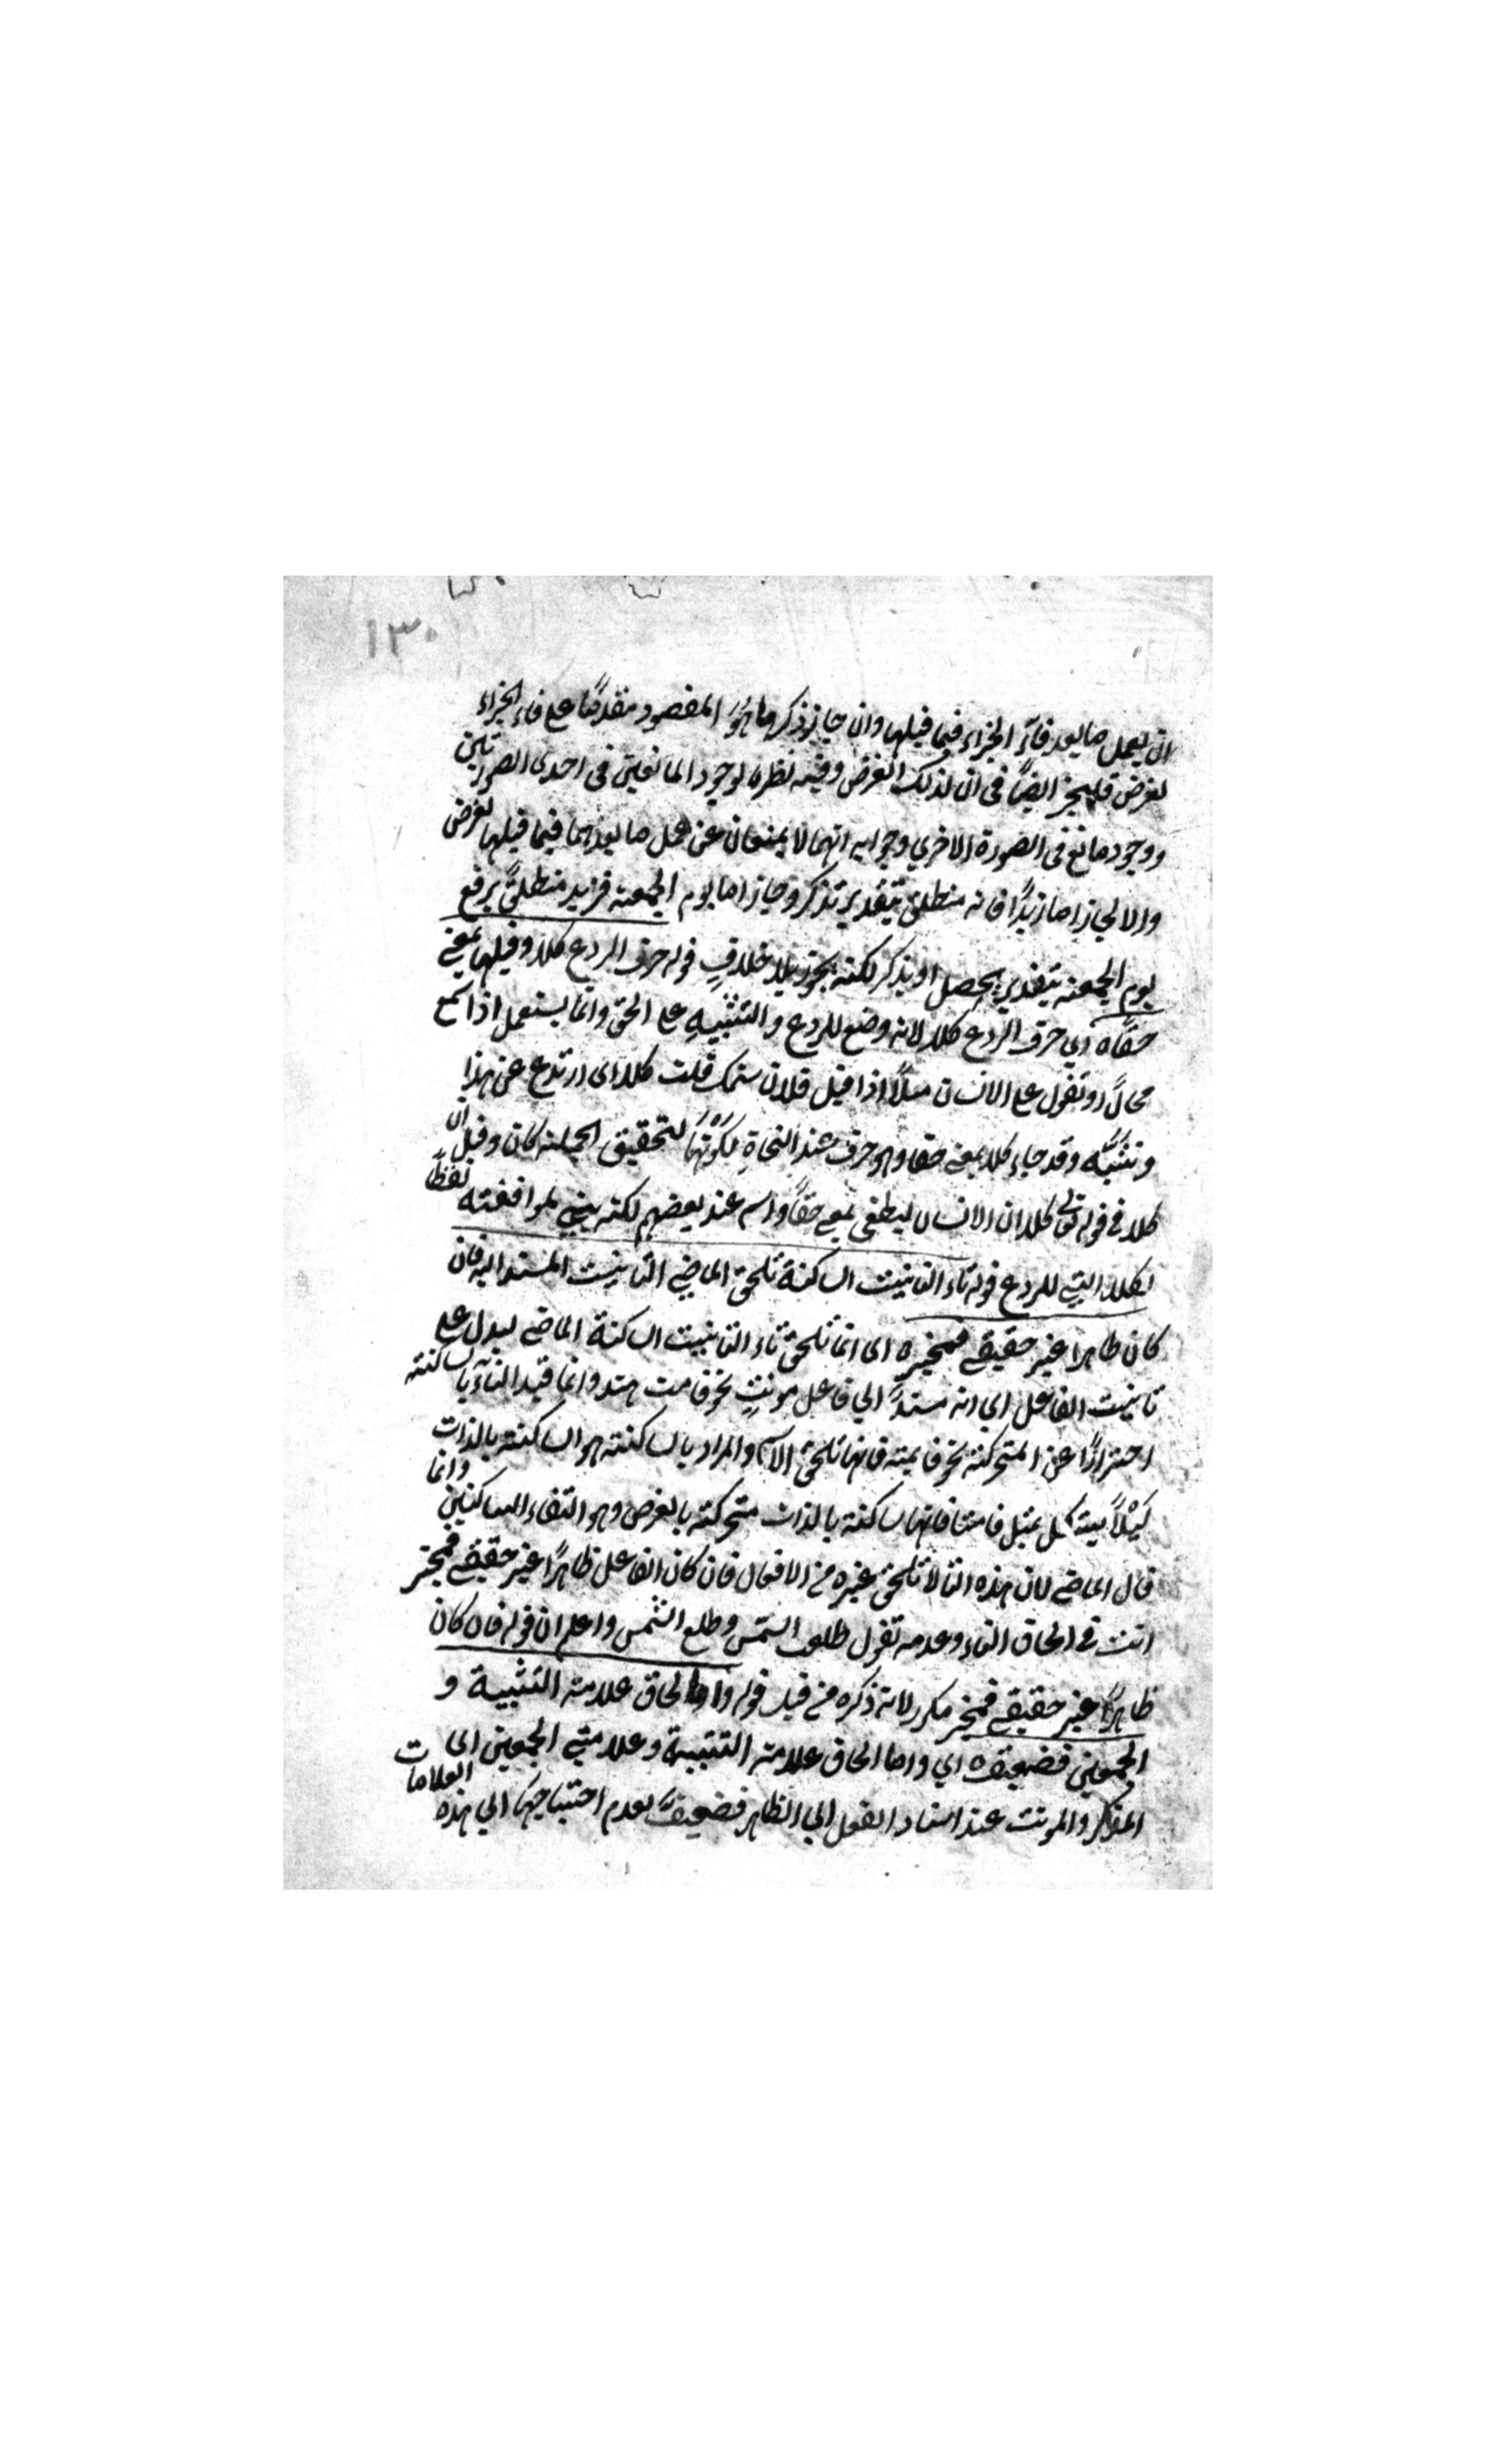 ١٣٠
ان يعمل ما بعد فاء الجزاء فيما قبلها وان جاز ذكر ما هو المقصود متقدمًا على فاء الجزاء
لغرض فليجز ايضًا في ان لذلك الغرض وفيه نظر لوجود المانعين في احدى الصورتين
ووجود مانع في الصورة الاخرى وجوابه انهما لا يمنعان عن عمل ما بعدهما فيما قبلها لغرض
والا لجاز اما زيدًا فانه منطلق بتقدير تذكر وجاز اما يوم الجمعة فزيد منطلق برفع
يوم الجمعة بتقدير يحصل او يذكر لكنه يجوز بلا خلاف قوله حرف الردع كلا وقيلها بمعنى
حقًا اي حرف الردع كلا لانه وضع للردع والتنبيه على الحق وانما يستعمل اذا سمع
محالًا وتقول على الانسان مثلًا اذا قيل فلان شتمك قلت كلا اى ارتدع عن هذا
وتنبّه وقد جاء كلا بمعنى حقا وهو حرف عند النحاة لكونها لتحقيق الجملة كان وقيل ان
كلا في قوله تعالى كلا ان الانسان ليطغى بمعنى حقًا واسم عند بعضهم لكنه بني لموافقته لفظًا
لكلا التي للردع قوله تاء التانيث الساكنة تلحق الماضي لتانيث المسند اليه فان
كان ظاهرا غير حقيقي فمخير اى انما تلحق تاء التانيث الساكنة الماضي ليدل على
تانيث الفاعل اي انه مسند الي فاعل مونث نحو قامت هند وانما قيد التاء بالساكنة
احترازًا عن المتحركة نحو قايمة فانها تلحق الاسم والمراد بالساكنة هو الساكنة بالذات
كيلا يشكل بمثل قامتا فانها ساكنة بالذات متحركة بالعرض وهو التقاء الساكنين وانما
قال الماضي لان هذه التا لا تلحق غيره من الافعال فان كان الفاعل ظاهرًا غير حقيقي فمخير
انت في الحاق التاء وعدمه تقول طلعت الشمس وطلع الشمس واعلم ان قوله فان كان
ظاهرًا غير حقيقي فمخير مكرر لانه ذكره من قبل قوله واما الحاق علامة التثنية و
الجمعين فضعيف اي واما الحاق علامة التثنية وعلامتي الجمعين اى
المذكر والمونث عند اسناد الفعل الي الظاهر فضعيف لعدم احتياجها الي هذه العلامات